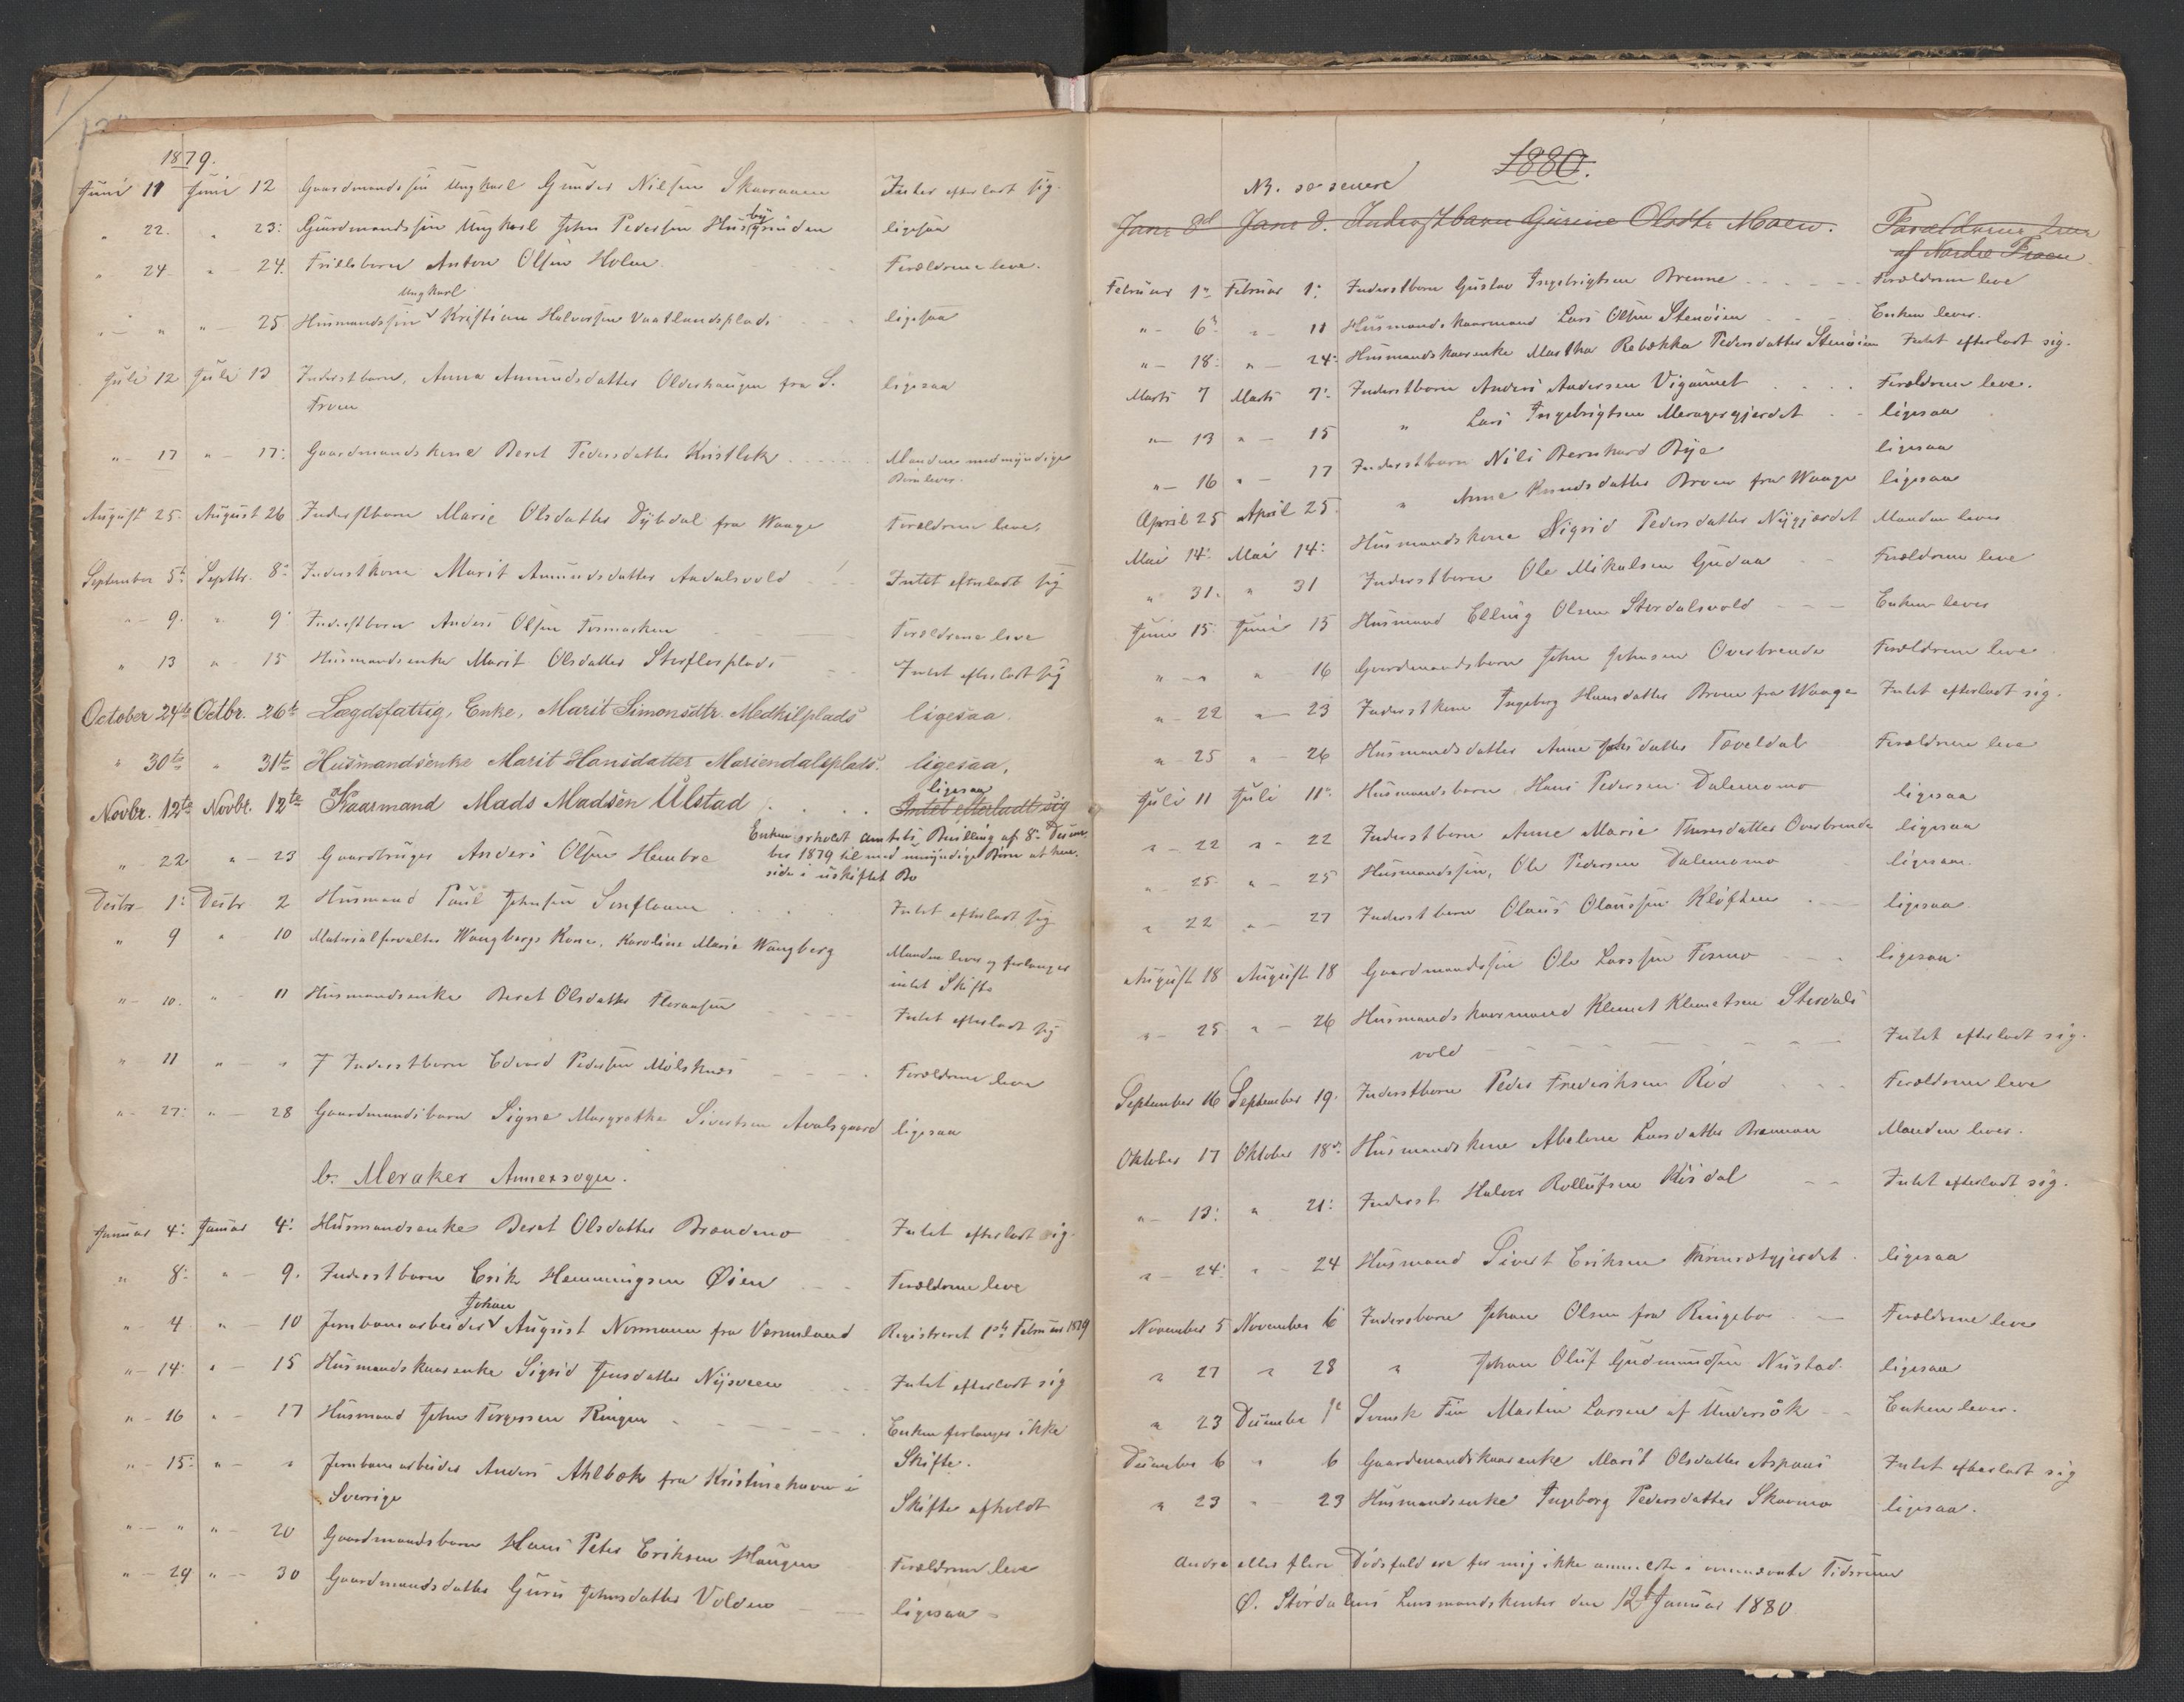 1879.
Juni 11 Juni 12 Gaardmandssøn Ungkarl Gunder Nilsen Intet efterladt sig.
" 22. " 23: Gaardmandssøn Ungkarl John Pedersen Husbygrinden ligesaa
" 24 " 24. Anton Olsen Holm Forældrene leve.
Ungkarl
" " " 25 Husmandssøn Kristian Halvorsen Vaatlandsplads ligesaa
Juli 12 Juli 13 Inderstbarn, Anna Amundsdatter Olderhaugen fra S. ligesaa
Froen
" 17 " 17: Gaardmandskone Beret Pedersdatter Kristlok Manden med myndige
Børn lever.
August 25. August 26 Inderstbarn Marie Olsdatter Dybdal fra Waage Forældrene leve.
September 5te Septbr. 8de Inderstkone Marit Amundsdatter Aadalsvold Intet efterladt sig
" 9. " 9: Inderstbarn Anders Olsen Forældrene leve
" 13 " 15 Husmandsenke Marit Olsdatter Intet efterladt sig
October 24de Octbr. 26te Lægdsfattig, Enke, Marit Simonsdtr. Medhilplads ligesaa.
" 30te " 31te Husmandsenke Marit Hansdatter Mariendalsplads. ligesaa.
ligesaa
Novbr. 12te Novbr. 12te Kaarmand Mads Madsen Ulstad . . . . Intet efterladt sig
Enken erholdt Amtets Bevilling af 8de Decem-
" 22 " 23 Gaardbruger Anders Olsen Hembre ber 1879 til med umyndige Børn at hen-
side i uskiftet Bo
Decbr 1: Decbr 2 Husmand Paul Johnsen Intet efterladt sig
" 9 " 10 Materialforvalter Wangbergs Kone, Karoline Marie Wangberg Manden lever og forlanger
intet Skifte
" 10. " 11 Husmandsenke Beret Olsdatter Intet efterladt sig
" 11 " " Inderstbarn Edvard Pedersen Mölsknæs Forældrene leve
" 27: " 28 Gaardmandsbarn Signe Margrethe Sivertsen Avelsgaard ligesaa
b. Meraker Annexsogn.
Januar 4: Januar 4: Husmandsenke Beret Olsdatter Brændmo Intet efterladt sig.
" 8: " 9. Inderstbarn Erik Hemmingsen Øien Forældrene leve
Johan
" 4 " 10 Jernbanearbeider August Normann fra Vermland Registreret 1ste Februar 1879
" 14: " 15 Husmandskaarenke Sigrid Jensdatter Nysveen Intet efterladt sig
" 16 " 17 Husmand John Torgersen Ringen Enken forlanger ikke
Skifte.
" 15: " " Jernbanearbeider Anders Ahlbæk fra Kristinehavn i
Sverrige Skifte afholdt
" " " 20 Gaardmandsbarn Hans Peter Eriksen Haugen Forældrene leve
" 29 " 30 Gaardmandsdatter Guru Johnsdatter Volden ligesaa
1880.
NB. se senere
Janr 8d Janr 8. Inderstbarn Gurine Olsdtr Moen. Forældrene leve
af Nordre Froen
Februar 1ste Februar 1: Inderstbarn Gustav Ingebrigtsen Brenne Forældrene leve
" 6te " 11 Husmandskaarmand Lars Olsen Stenöien Enken lever.
" 18: " 24: Husmandskaarenke Martha Rebekka Pedersdatter Stenöien Intet efterladt sig.
Marts 7 Marts 7: Inderstbarn Anders Andersen Forældrene leve.
" 13 " 15 " Lars Ingebrigtsen Meragergjerdet ligesaa
" 16 " 17 Inderstbarn Nils Bernhard Bye ligesaa
April 25 April 25 " Anne Knudsdatter Broen fra Waage ligesaa
Mai 14: Mai 14: Husmandskone Sigrid Pedersdatter Nygjærdet Manden lever
" 31. " 31 Inderstbarn Ole Mikalsen Gudaa Forældrene leve
Juni 15 Juni 15 Husmand Elling Olsen Stordalsvold Enken lever
" " " 16 Gaardmandsbarn John Johnsen Overbrende Forældrene leve
" 22 " 23 Inderstkone Ingeborg Hansdatter Broen fra Waage Intet efterladt sig.
" 25 " 26 Husmandsdatter Anne Tøveldal Forældrene leve
Juli 11 Juli 11: Husmandsbarn Hans Pedersen Dalemomo ligesaa
" 22 " 22 Inderstbarn Anne Marie Thoresdatter Overbrende ligesaa
" 25 " 25 Husmandssøn, Ole Pedersen Dalemomo ligesaa
" 22 " 27 Inderstbarn Olaus Olaussen Kløften ligesaa
August 18 August 18 Gaardmandssøn Ole Larssen Fosmo ligesaa
" 25 " 26 Husmandskaarmand Klemet Klemetsen Stordals
vold Intet efterladt sig.
September 16 September 19. Inderstbarn Peder Frederiksen Röd Forældrene leve
Oktober 17 Oktober 18de Husmandskone Abelone Larsdatter Brennan Manden lever.
" 13: " 21: Inderst Halvor Rollufsen Intet efterladt sig.
" 24: " 24 Husmand Sivert Eriksen ligesaa
November 5 November 6 Inderstbarn Johan Olsen fra Ringebo Forældrene leve
" 27 " 28 " Johan Oluf Gudmundsen Nustad. ligesaa
" 23 December 1ste Svensk Fin Martin Larsen af Undersåk Enken lever.
December 6 " 6 Gaardmandskaarenke Marit Olsdatter Aspaas Intet efterladt sig
" 23 " 23 Husmandsenke Ingeborg Pedersdatter Skarmo ligesaa.
Andre eller flere Dödsfald ere for mig ikke anmeldte i omnævnte Tidsrum
Ø. Stördalens Lensmandskontor den 12te Januar 1880